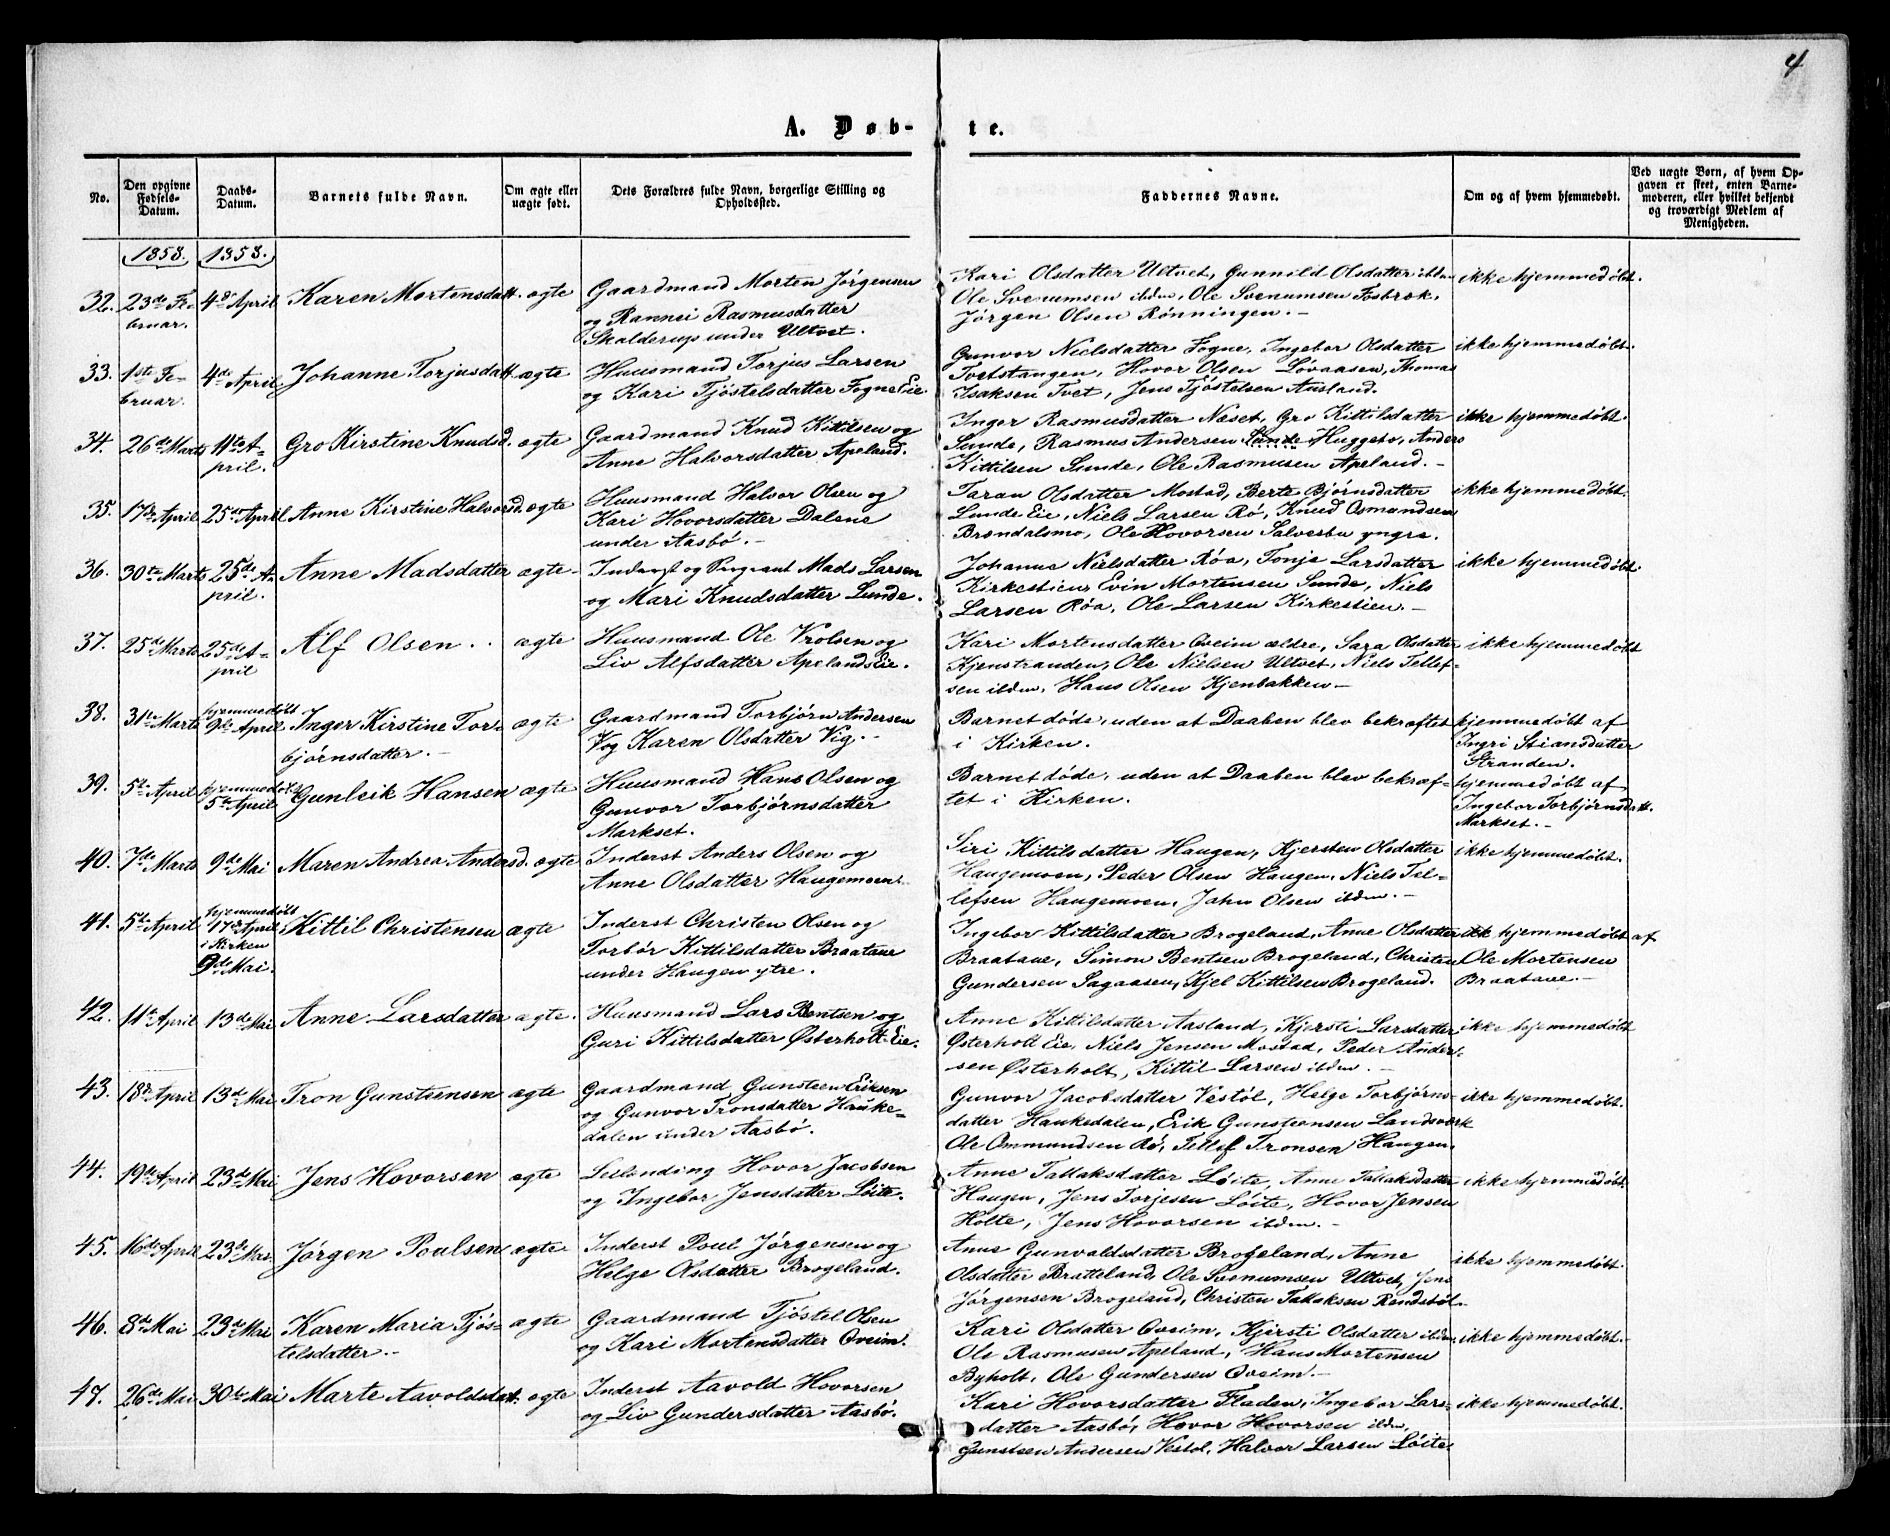 4
A. Døb-te.
No.
Den opgivne Fødsels-Datum.
Daabs-Datum.
Barnets fulde Navn.
Om ægte eller uægte født.
Dets Forældres fulde Navn, borgerlige Stilling og Opholdssted.
Faddernes Navne.
Om og af hvem hjemmedøbt.
Ved uægte Børn, af hvem Opgaven er skeet, enten Barnemoderen, eller hvilket bekjendt og troværdigt Medlem af Menigheden.
1858. 1858.
32. 23de Februar. 4de April Karen Mortensdatt. ægte Gaardmand Morten Jørgensen
og Rannei Rasmusdatter
Skalderup under Ultvet.
Kari Olsdatter Ultvet, Gunnild Olsdatter ibdm
Ole Svenumsen ibdm, Ole Svenumsen Fosbræk,
Jørgen Olsen Rønningen.
ikke hjemmedøbt.
33. 1ste Februar. 4de April Johanne Torjusdatt. ægte Huusmand Torjus Larsen
og Kari Tjøstelsdatter Fogne Eie
Gunvor Nielsdatter Fogne, Ingebor Olsdatter
Tvetstangen, Hovor Olsen Løvaasen, Thomas
Isaksen Tvet, Jens Tjøstelsen Ausland.
ikke hjemmedøbt.
34. 26de Marts 11te April. Gro Kirstine Knudsd. ægte Gaardmand Knud Kittilsen og
Anne Halvorsdatter Apeland.
Inger Rasmusdatter Neset, Gro Kittilsdatter
Sunde, Rasmus Andersen Lunde Huggebo, Anders
Kittilsen Sunde, Ole Rasmusen Apeland.
ikke hjemmedøbt.
35. 17de April 25de April Anne Kirstine Halvorsd. ægte Huusmand Halvor Olsen og
Kari Hovorsdatter Dalene
under Aasbø.
Taran Olsdatter Mostad, Berte Bjørnsdatter
Lunde Eie, Niels Larsen Rø, Knud Osmundsen
Brændalsmo, Ole Hovorsen Salvesbu yngre.
ikke hjemmedøbt.
36. 30te Marts 25de April. Anne Madsdatter ægte Inderst og Sergeant Mads Larsen
og Mari Knudsdatter Lunde.
Johanne Nielsdatter Røa, Tonje Larsdatter
Kirkestien, Evin Mortensen Sunde, Niels
Larsen Røa, Ole Larsen Kirkestien.
ikke hjemmedøbt
37. 25de Marts 25de April Alf Olsen ægte Huusmand Ole Vrolsen og
Liv Alfsdatter Apelands Eie.
Kari Mortensdatter Øveim ældre, Sara Olsdatter
Kjenstranden, Ole Nielsen Ultvet, Niels Tellefsen ibdm, Hans Olsen Kjenbakken
ikke hjemmedøbt
38. 31te Marts hjemmedøbt 9de April Inger Kirstine Torbjørnsdatter. ægte Gaardmand Torbjørn Andersen
og Karen Olsdatter Vig.
Barnet døde, uden at Daaben blev bekræftet
i Kirken.
hjemmedøbt af
Ingri Stiansdatter
Stranden.
39. 5te April hjemmedøbt 5te April Gunleik Hansen ægte Huusmand Hans Olsen og
Gunvor Torbjørnsdatter
Markset.
Barnet døde, uden at Daaben blev bekræftet i Kirken.
hjemmedøbt af
Ingebor Torbjørnsdatt.
Markset.
40. 7de Marts 9de Mai Maren Andrea Andersd. ægte Inderst Anders Olsen og
Anne Olsdatter Haugemoen
Siri Kittilsdatter Haugen, Kjersten Olsdatter
Haugemoen, Peder Olsen Haugen, Niels Tellefsen Haugemoen, John Olsen ibdm.
ikke hjemmedøbt.
41. 5te April hjemmedøbt 17de April i Kirken 9de Mai. Kittil Christensen ægte Inderst Christen Olsen og
Torbor Kittilsdatter Braatane
under Haugen ytre.
Ingebor Kittilsdatter Brogeland, Anne Olsdatter
Braatane, Simon Bentsen Brogeland, Christen
Gundersen Sagaasen, Kjel Kittilsen Brogeland.
hjemmedøbt af
Ole Mortensen
Braatane.
42. 11te April 13de Mai Anne Larsdatter ægte. Huusmand Lars Bentsen og
Guri Kittilsdatter Østerholt Eie.
Anne Kittilsdatter Aasland, Kjersti Larsdatter
Østerholt Eie, Niels Jensen Mostad, Peder Andersen Østerholt, Kittil Larsen ibdm.
ikke hjemmedøbt
43. 18de April 13de Mai Tron Gunsteensen ægte Gaardmand Gunsteen Eriksen
og Gunvor Tronsdatter Haukedalen under Aasbø.
Gunvor Jacobsdatter Vestøl, Helge Torbjørnsdatter Haukedalen, Erik Gunsteensen Landsværk
Ole Ommundsen Rø, Tellef Tronsen Haugen.
ikke hjemmedøbt.
44. 19de April 23de Mai Jens Hovorsen ægte Leilænding Hovor Jacobsen
og Ingebor Jensdatter Løite.
Anne Tallaksdatter Løite, Anne Tallaksdatter
Haugen, Jens Torjesen Løite, Hovor Jensen
Holte, Jens Hovorsen ibdm.
ikke hjemmedøbt.
45. 16de April 23de Mai. Jørgen Poulsen ægte Inderst Poul Jørgensen og
Helge Olsdatter Brogeland.
Anne Gunvaldsdatter Brogeland, Anne
Olsdatter Bratteland, Ole Svenumsen Ultvet, Jens
Jørgensen Brogeland, Christen Tallaksen Rendsbøl.
ikke hjemmedøbt.
46. 8de Mai 23de Mai Karen Maria Tjøstelsdatter. ægte Gaardmand Tjøstel Olsen
og Kari Mortensdatter Øveim.
Kari Olsdatter Øveim, Kjersti Olsdatter ibdm,
Ole Rasmusen Apeland, Hans Mortensen
Byholt, Ole Gundersen Øveim.
ikke hjemmedøbt.
47. 26de Mai 30te Mai Marte Aavoldsdatt. ægte Inderst Aavold Hovorsen
og Liv Gundersdatter Aasbø.
Kari Hovorsdatter Fladen, Ingebor Larsdatter Aasbø, Hovor Hovorsen ibdm,
Gunsteen Andersen Vestøl, Halvor Larsen Løite
ikke hjemmedøbt.